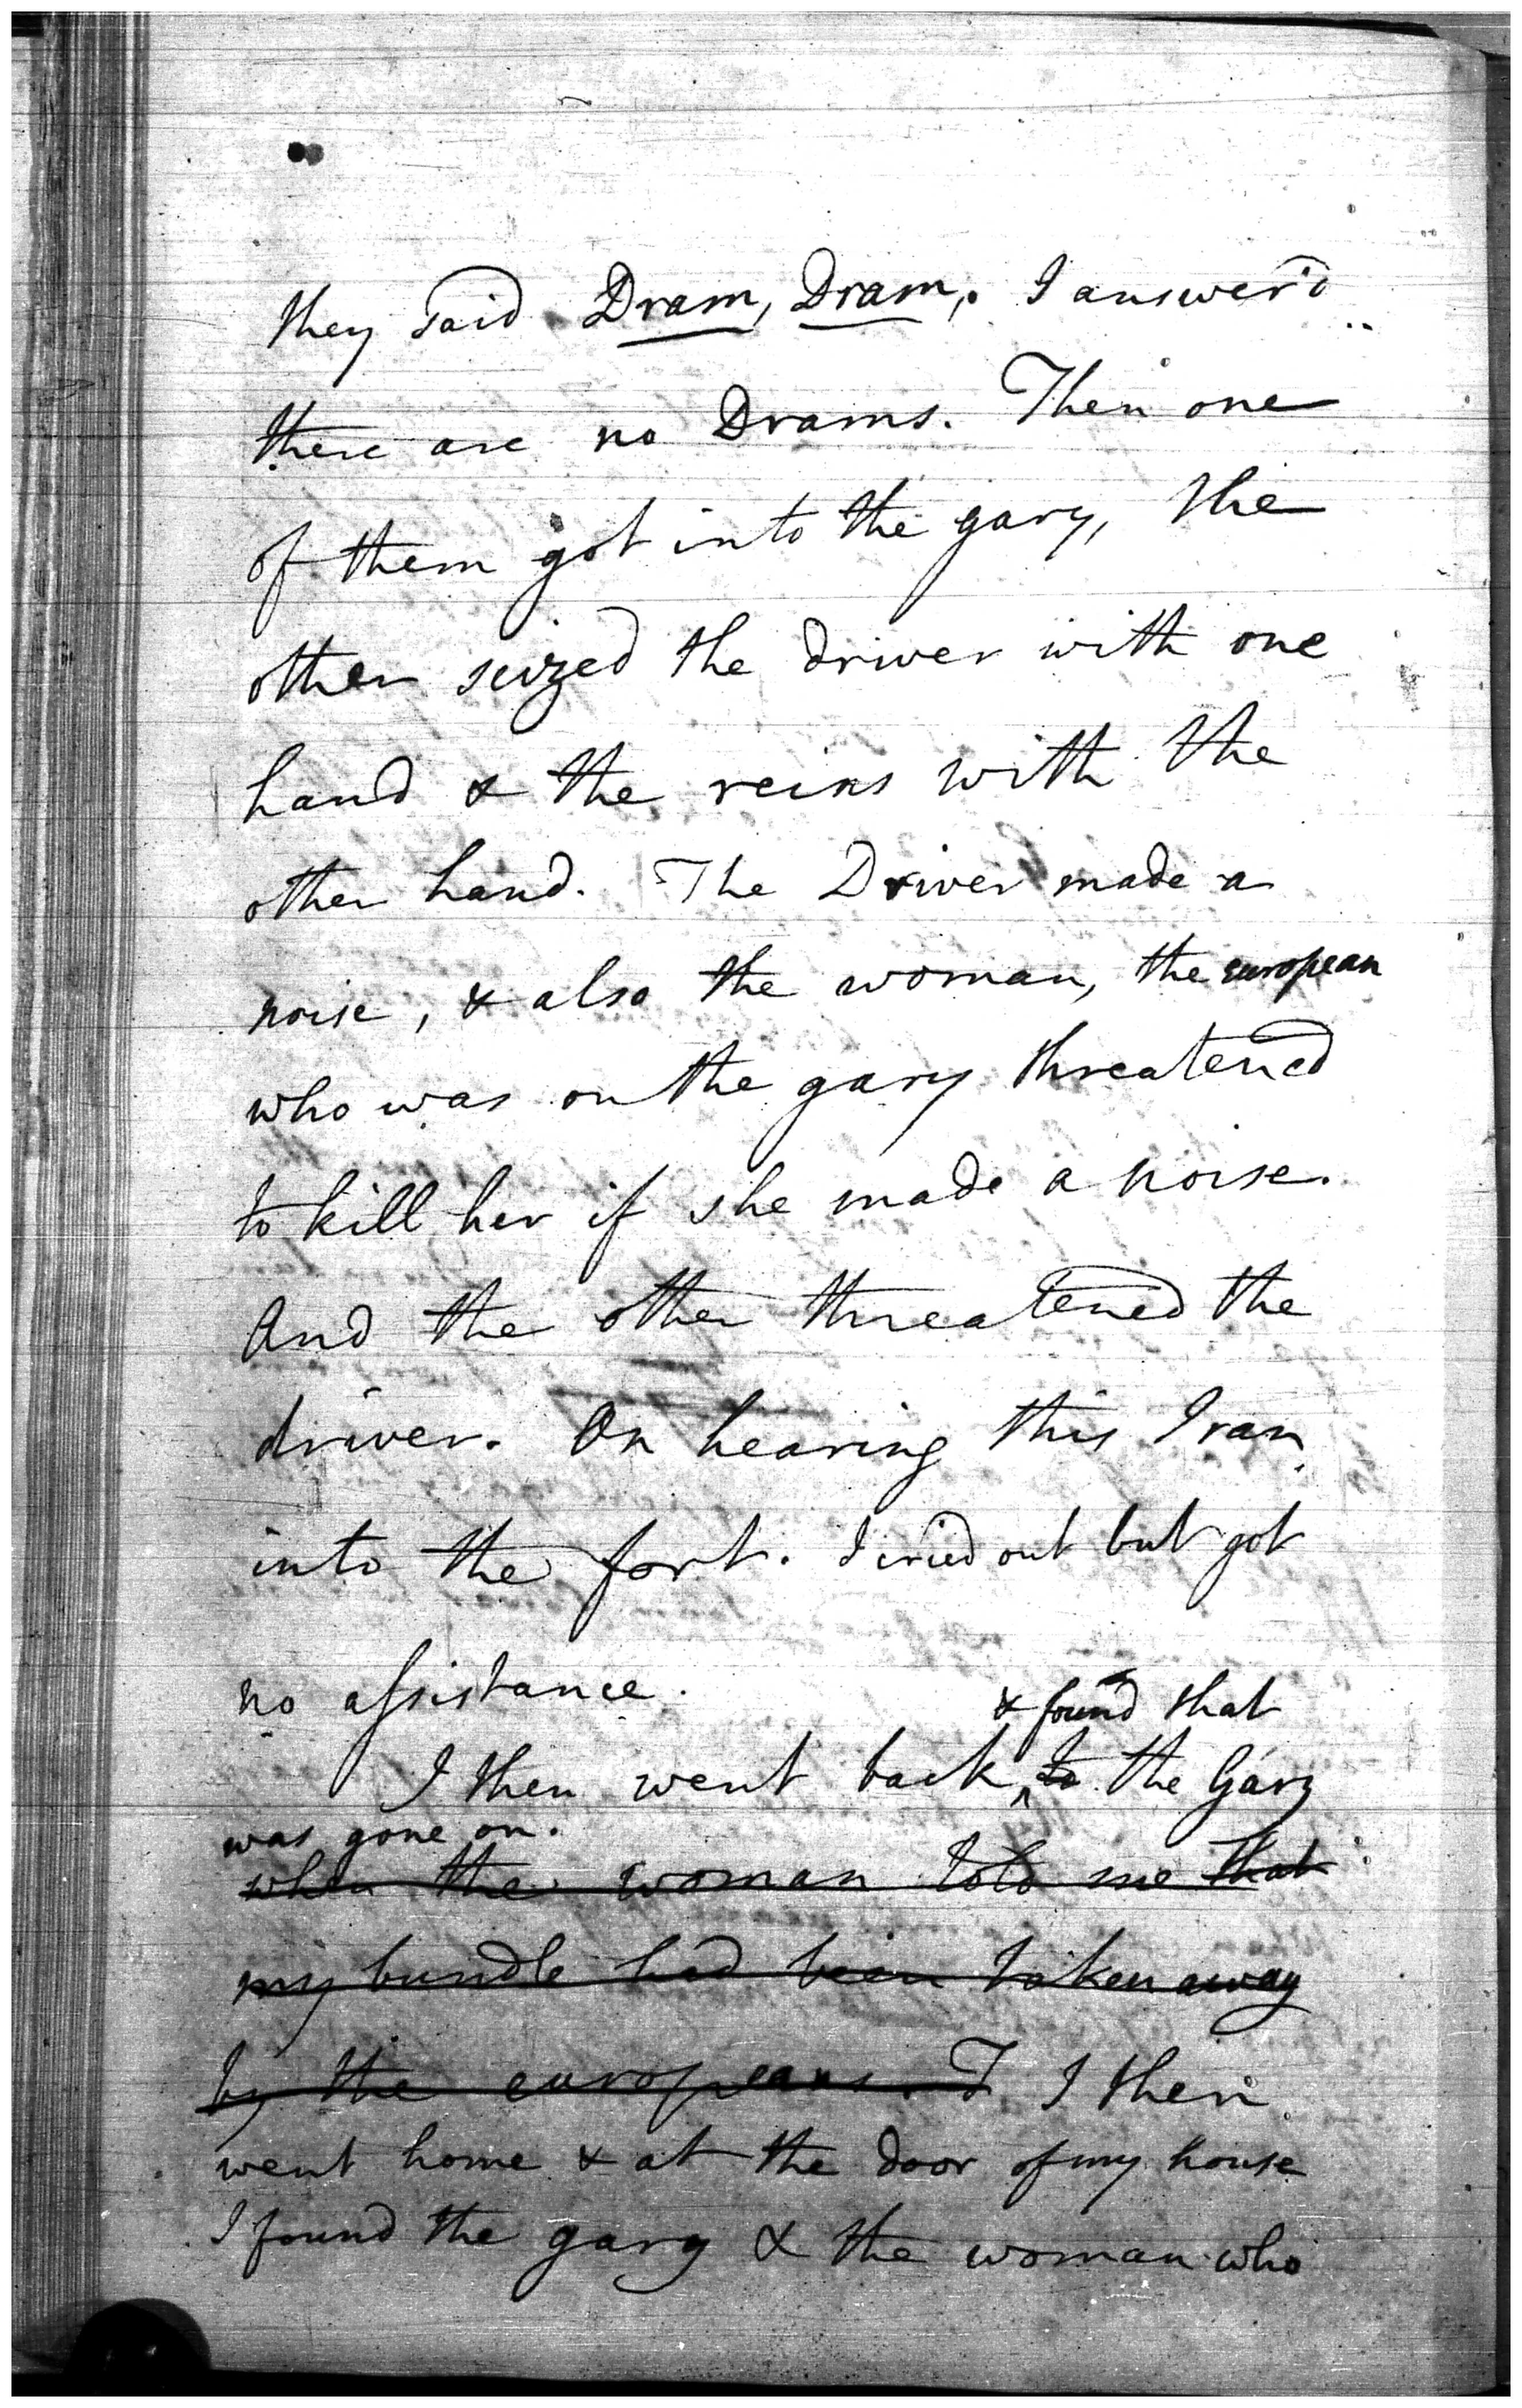 they said Dram, Dram, I answer'd
there are no Drams. Then one
of them got into the gary, the
other seized the driver with one
hand & the reins with the
other hand. The Driver made a
noise, & also the woman, the european
who was on the gary threatened
to kill her if she made a noise.
And the other threatened the
driver. On hearing this I ran
into the fort. I cried out but got
no assistance.
& found that
I then went back to the Gary
was gone on.
when the woman told me that
my bundle had been taken away
by the europeans. I I then
went home & at the door of my house
I found the gary & the woman who